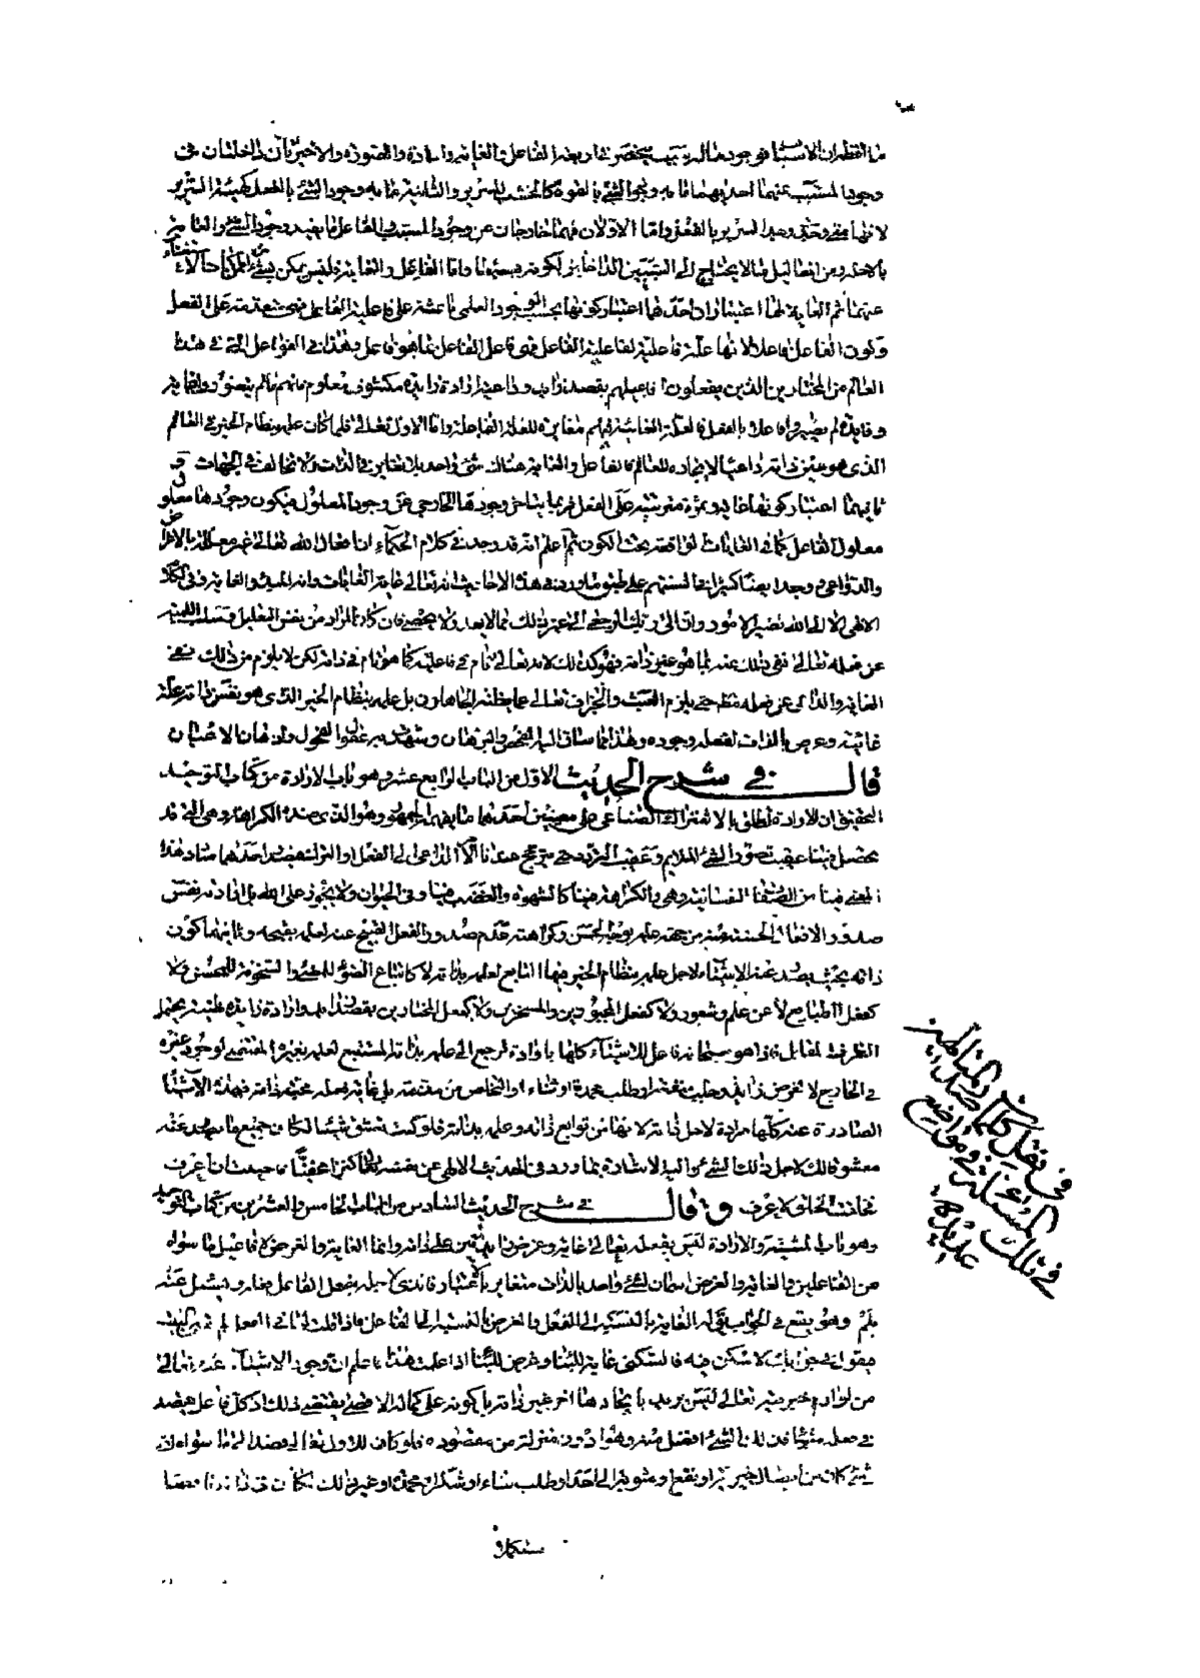 وجود المسبب عنهما احديهما ما به وجود الشئ بالقوة كالخشب للسرير والثانية ما به وجود الشئ بالفعل كهيئة السرير
واما الاولان فهما خارجان عن وجود المسبب فالفاعل ما يفيد وجود الشئ والغاية
عنهما ثم الغاية لها اعتباران احدهما اعتبار كونها بحسب الوجود العلمى باعثة على فاعلية الفاعل فهى متقدمة على الفعل
وكون الفاعل فاعلا لانها علة فاعلية لفاعلية الفاعل فهو فاعل الفاعل بما هو فاعل وهذا فى الفواعل التى فى هذا
العالم من المختارين الذين يفعلون افاعيلهم بقصد زايد وداعية ارادة زايدة مكشوف معلوم فانهم ما لم يتصوروا غاية
وفايدة لم يصيروا فاعلا بالفعل فالعلة الغائية فيهم مغايرة للعلة الفاعلة واما الاول تعالى فلما كان علمه بنظام الخير فى العالم
الذى هو عين ذاته داعيا لايجاده للعالم فالفاعل والغاية هناك شئ واحد بلا تغاير فى الذات ولا تخالف فى الجهات و
ثانيهما اعتبار كونها غاية وثمرة مترتبة على الفعل فربما يتاخر وجودها الخارجى عن وجود المعلول فيكون وجودها معلول
معلول الفاعل كما فى الغايات الواقعة تحت الكون ثم اعلم انه قد وجد فى كلام الحكماء ان افعال الله تعالى غير معللة بالاغراض
والدواعى ووجد ايضا كثيرا فى السنتهم على طبق ما ورد فى هذه الاحاديث انه تعالى غاية الغايات وانه المبدء والغاية وفى الكلام
الالهى الا الى الله تصير الامور وان الى ربك الرجعى الى غير ذلك مما لا يعد ولا يحصى فان كان المراد من نفى التعليل وسلب اللمية
عن فعله تعالى نفى ذلك عنه بما هو غير ذاته فهو كذلك لانه تعالى تام فى فاعليته كما هو تام فى ذاته لكن لا يلزم من ذلك نفى
الغاية والداعى عن فعله مطلقا حتى يلزم العبث والجزاف تعالى عما يظنه الجاهلون بل علمه بنظام الخير الذى هو نفس ذاته علة
غائية وغرض بالذات لفعله وجوده وهذا مما ساق اليه الفحص والبرهان وشهدت به عقول الفحول واذهان الاعيان
قال فى شرح الحديث الاول من الباب الرابع عشر وهو باب الارادة من كتاب التوحيد
التحقيق ان الارادة تطلق بالاشتراك الصناعى على معنيين احدهما ما يفهمه الجمهور وهو الذى ضده الكراهة وهى التى قد
تحصل فينا عقيب تصور الشئ الملايم وعقيب التردد حتى يترجح عندنا الامر الداعى الى الفعل او الترك فيصدر احدهما منا وهذا
المعنى فينا من الصفات النفسانية وهى والكراهة فينا كالشهوة والغضب فينا وفى الحيوان ولا يجوز على الله بل ارادته نفس
صدور الافعال الحسنة منه من جهة علمه بوجه الحسن وكراهته عدم صدور الفعل القبيح عنه لعلمه بقبحه وثانيهما كون
ذاته بحيث يصدر عنه الاشياء لاجل علمه بنظام الخير فيها التابع لعلمه بذاته لا كاتباع الضوء للمضئ والسخونة للمسخن ولا
كفعل الطبايع لا عن علم وشعور ولا كفعل المجبورين والمسخرين ولا كفعل المختارين بقصد زايد وارادة زايدة ظنية يحتمل
الطرف المقابل فاذا هو سبحانه فاعل للاشياء كلها بارادة ترجع الى علمه بذاته المستتبع لعلمه بغيره المقتضى لوجود غيره
فى الخارج لا لغرض زايد وجلب منفعة او طلب محمدة او ثناء او التخلص من مذمة بل غاية فعله محبة ذاته فهذه الاشياء
الصادرة عنه كلها مرادة لاجل ذاته لانها من توابع ذاته وعلمه بذاته فلو كنت تعشق شيئا لكان جميع ما يصدر عنه
معشوقا لك لاجل ذلك الشئ واليه الاشارة بما ورد فى الحديث الالهى عن نفسه كنت كنزا مخفيا فاحببت ان اعرف
فخلقت الخلق لاعرف وقال فى شرح الحديث السادس من الباب الخامس والعشرين من كتاب التوحيد
وهو باب المشية والارادة ليس لفعله تعالى غاية وغرض
من الفاعلين والغاية والغرض اسمان لشئ واحد بالذات متغاير بالاعتبار فالذى لاجله يفعل الفاعل فعله ويسئل عنه
بلم وهو يقع فى الجواب يقال له الغاية بالنسبة الى الفعل والغرض بالنسبة الى الفاعل فاذا قلت لبانى البيت لم تبنى البيت
فيقول فى جوابك لاسكن فيه فالسكنى غاية للبناء وغرض للبناء اذا علمت هذا فاعلم ان وجود الاشياء عنه تعالى
من لوازم خيريته تعالى ليس يريد بايجادها شيئا اخر غير ذاته بل كونه على كماله الاقصى يقتضى ذلك اذ كل فاعل يقصد
فى فعله شيئا فذلك الشئ افضل منه وهو ادون منزلة من مقصوده فلو كان للاول تعالى قصد الى ما سواه اى
شئ كان من ايصال خير او نفع او مثوبة الى احد او طلب ثناء او شكر او محمدة او غير ذلك لكان فى ذاته ناقصا
مستكملا
فى نقل كلام صدر المتالهين
فى تلك المسئلة فى مواضع
عديدة